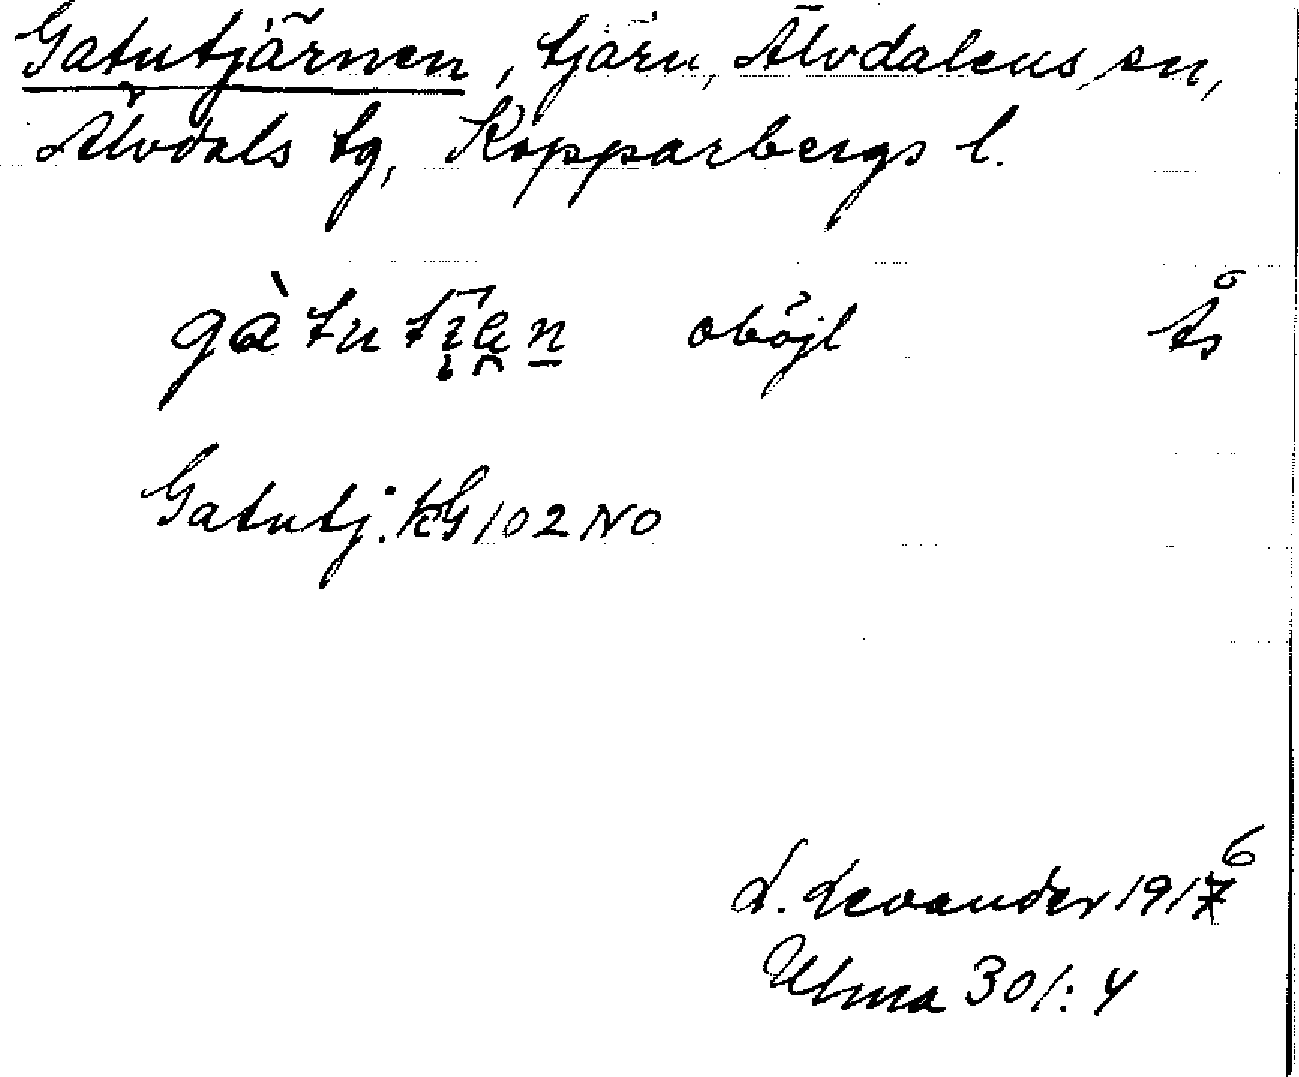 Gatutjärnen, tjärn, Älvdalens sn,
Älvdals tg, Kopparbergs l.
gàtutian oböjl ås
Gatutj. kG 102 NO
L. Levander 1917 6
Ulma 301:4